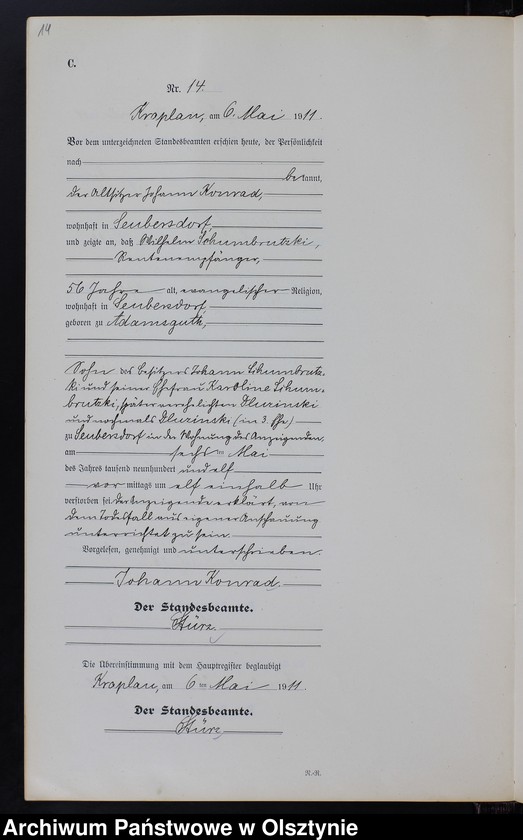 14
C.
Nr. 14.
Kraplau, am 6. Mai 1911.
Vor dem unterzeichneten Standesbeamten erschien heute, der Persönlichkeit
nach
bekannt,
der Altsitzer Johann Konrad,
wohnhaft in Seubersdorf,
und zeigte an, daß Wilhelm Schumbrutzki,
Rentenempfänger,
56 Jahre alt, evangelischer Religion,
wohnhaft in Seubersdorf
geboren zu Adamsguth,
Sohn des Besitzers Johann Schumbrutz-
ki und seiner Ehefrau Karoline Schum-
brutzki, später verehelichten Dluzinski
und nochmals Dluzinski (in 3. Ehe)
zu Seubersdorf in der Wohnung des Anzeigenden,
am sechsten Mai
des Jahres tausend neunhundert und elf
vormittags um elf einhalb Uhr
verstorben sei. Der Anzeigende erklärt, von
dem Todesfall aus eigener Anschauung
unterrichtet zu sein.
Vorgelesen, genehmigt und unterschrieben.
Johann Konrad.
Der Standesbeamte.
Stürz.
Die Übereinstimmung mit dem Hauptregister beglaubigt
Kraplau, am 6ten Mai 1911.
Der Standesbeamte.
Stürz
R.-R.
Archiwum Państwowe w Olsztynie